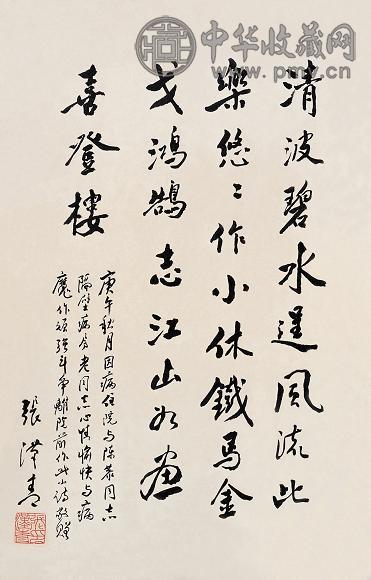 中华收藏网
www.pmy.cn
清波碧水逞風流此
樂悠〻作小休鐵馬金
戈鴻鵠志江山如画
喜登樓
庚午秋月因病住院与陈恭同志
隔壁病房老同志心情愉快与病
魔作顽强斗争離院前作此小诗敬贈
張漢青